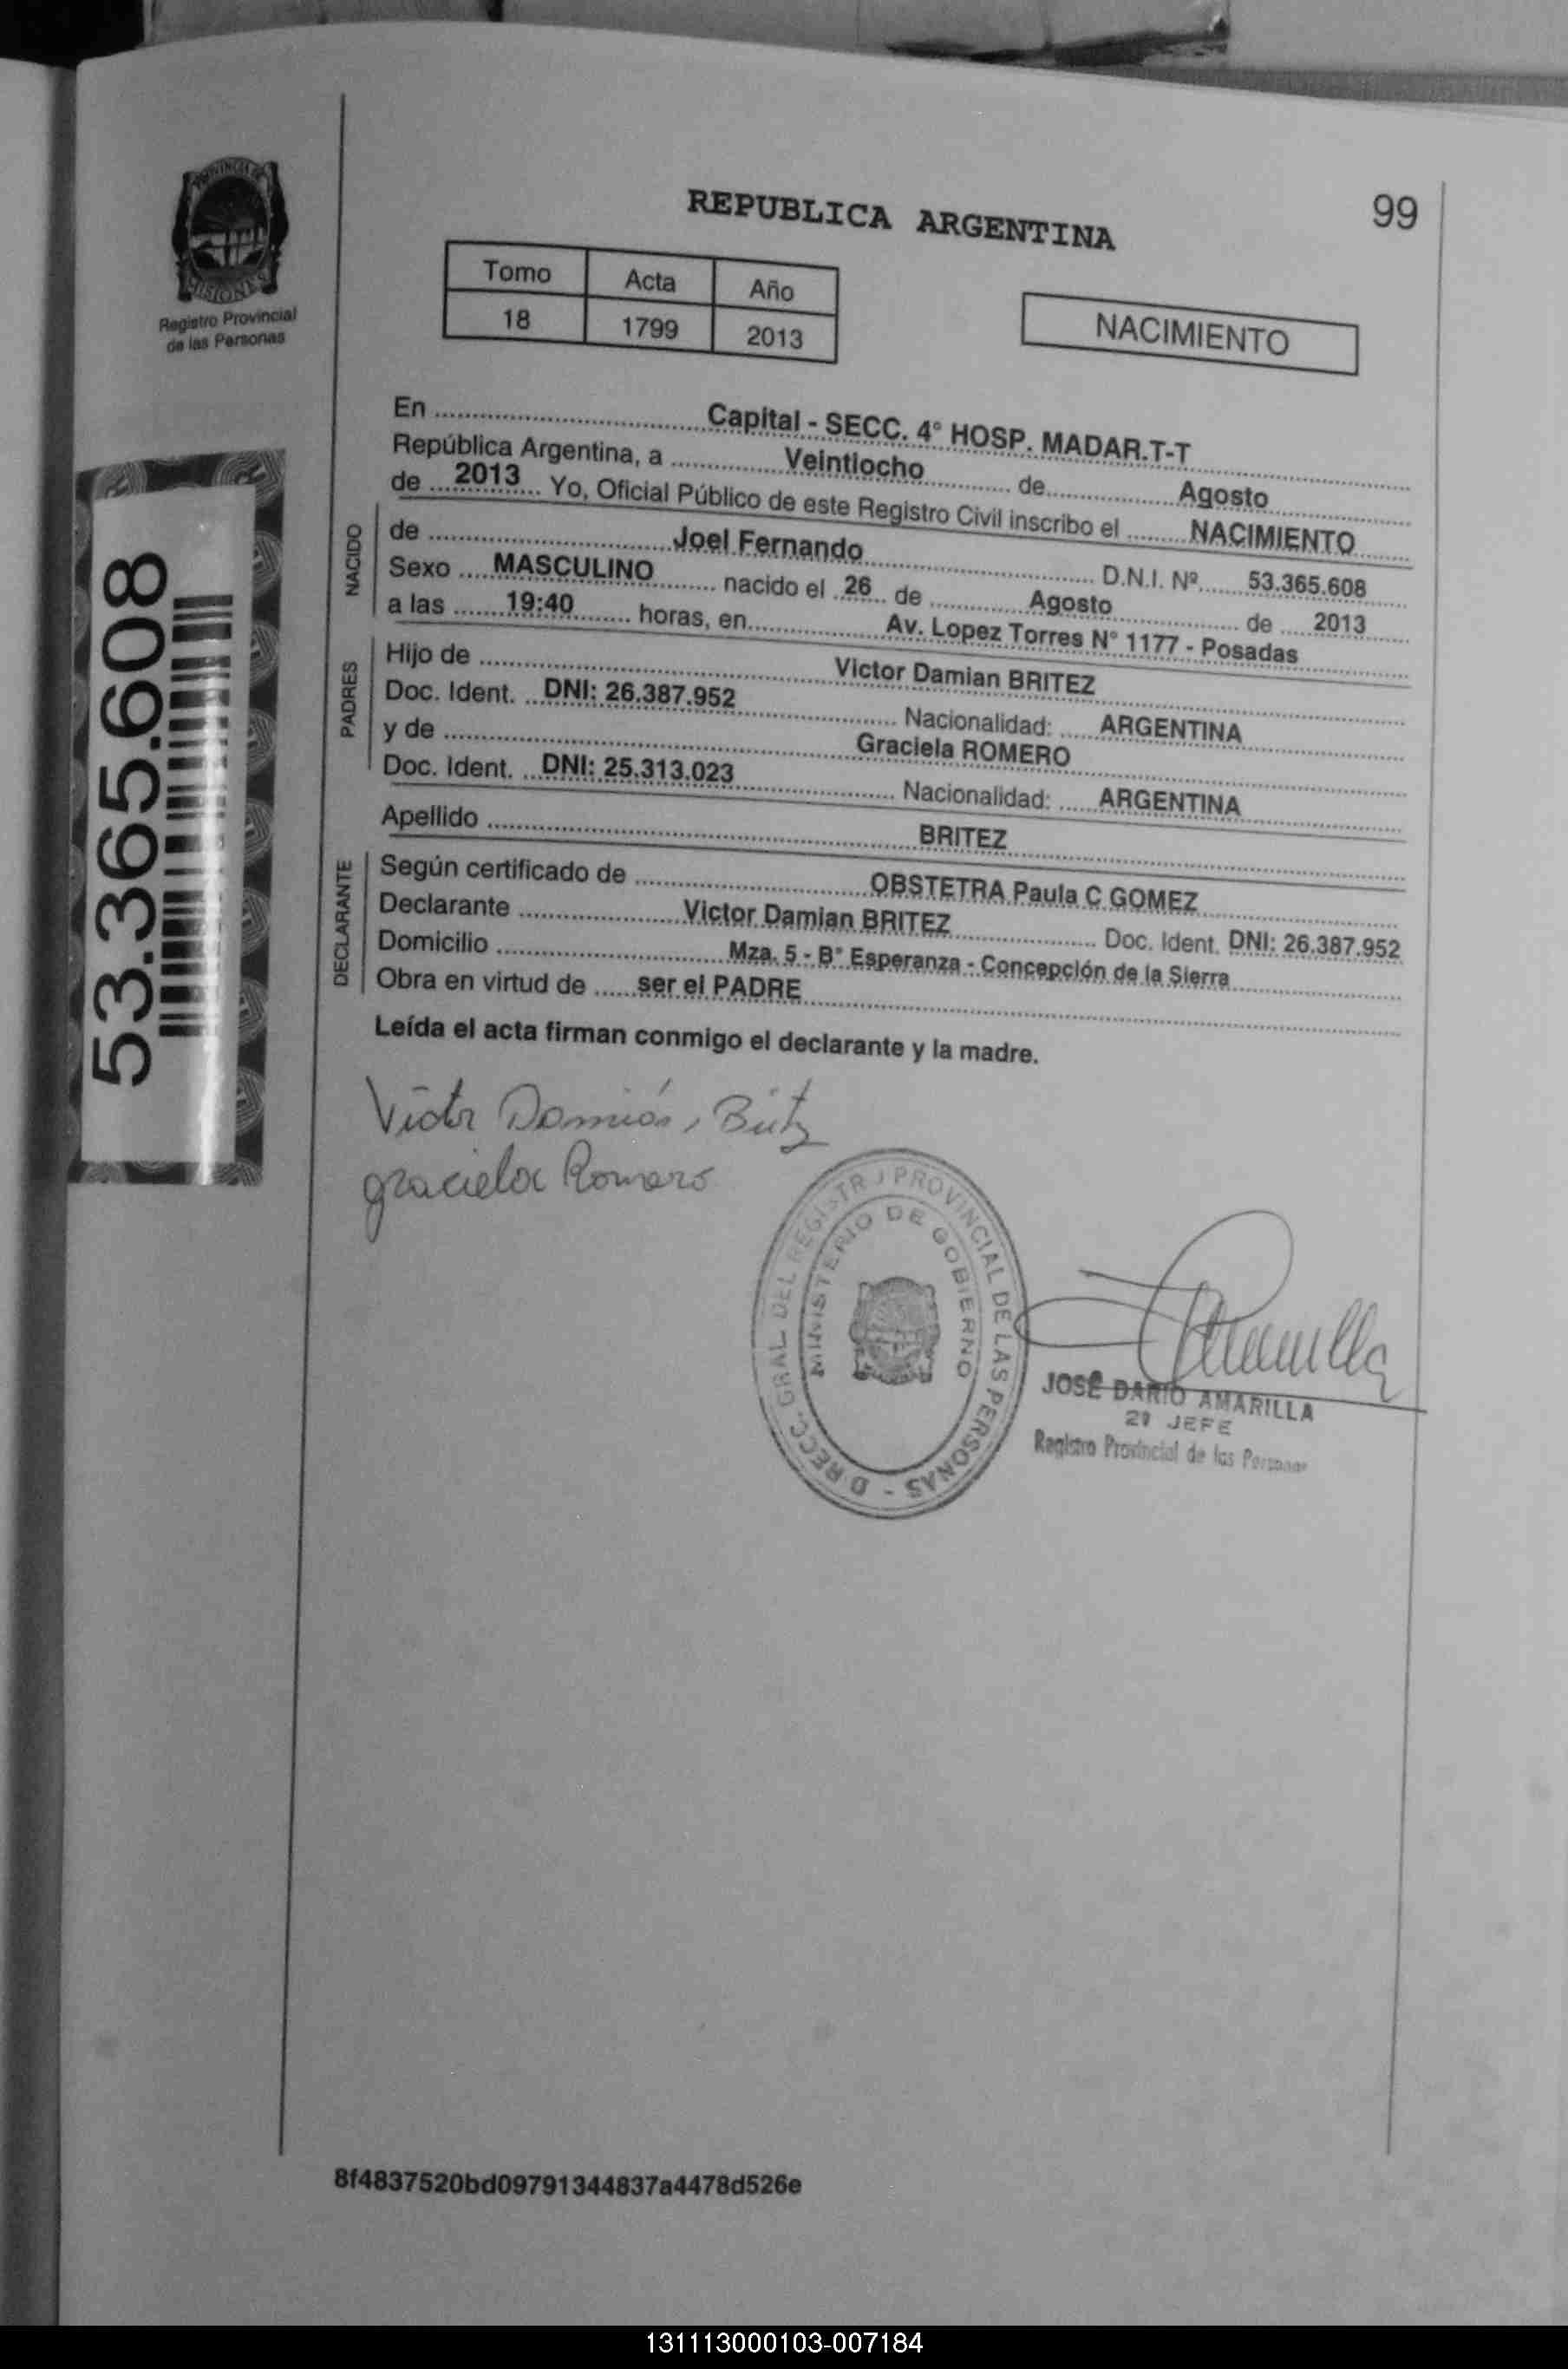 PROVINCIA DE
MISIONES
Registro Provincial
de las Personas
53.365.608
REPUBLICA ARGENTINA
99
Tomo Acta Año
18 1799 2013
NACIMIENTO
En Capital - SECC. 4° HOSP. MADAR.T-T
República Argentina, a Veintiocho de Agosto
de 2013 Yo, Oficial Público de este Registro Civil inscribo el NACIMIENTO
NACIDO
de Joel Fernando D.N.I. Nº 53.365.608
Sexo MASCULINO nacido el 26 de Agosto de 2013
a las 19:40 horas, en Av. Lopez Torres N° 1177 - Posadas
PADRES
Hijo de Victor Damian BRITEZ
Doc. Ident. DNI: 26.387.952 Nacionalidad: ARGENTINA
y de Graciela ROMERO
Doc. Ident. DNI: 25.313.023 Nacionalidad: ARGENTINA
Apellido BRITEZ
DECLARANTE
Según certificado de OBSTETRA Paula C GOMEZ
Declarante Victor Damian BRITEZ Doc. Ident. DNI: 26.387.952
Domicilio Mza. 5 - B° Esperanza - Concepción de la Sierra
Obra en virtud de ser el PADRE
Leída el acta firman conmigo el declarante y la madre.
Victor Damián, Britz
graciela Romero
DIRECC. GRAL. DEL REGISTRO PROVINCIAL DE LAS PERSONAS -
MINISTERIO DE GOBIERNO
Amarilla
JOSÉ DARIO AMARILLA
2º JEFE
Registro Provincial de las Personas
8f4837520bd09791344837a4478d526e
131113000103-007184